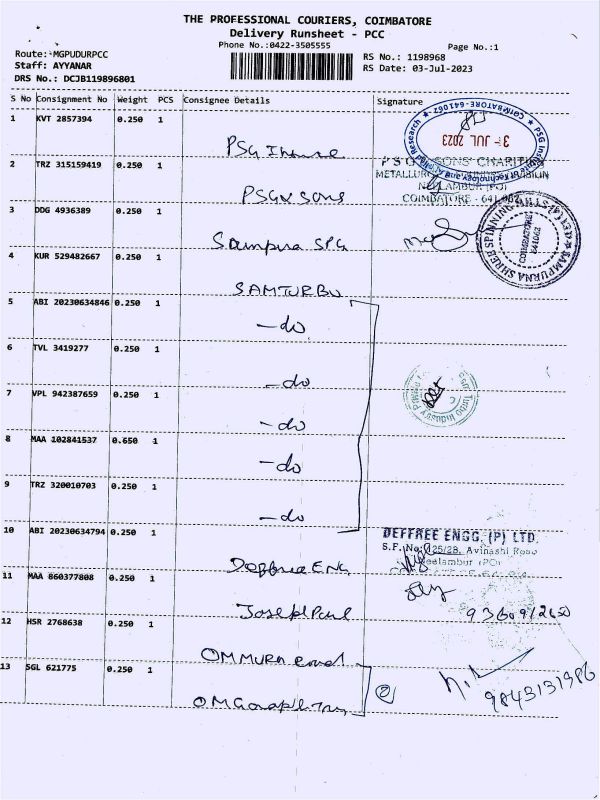 THE PROFESSIONAL COURIERS, COIMBATORE
Delivery Runsheet - PCC
Phone No.:0422-3505555
Page No.:1
Route:-MGPUDURPCC
Staff: AYYANAR
DRS No.: DCJB119896801
RS No.: 1198968
RS Date: 03-Jul-2023
S No Consignment No Weight PCS Consignee Details Signature
1 KVT 2857394 0.250 1
PSG
3- JUL 2023
COIMBATORE-641062
2 TRZ 315159419 0.250 1
PSG & SONS' CHARITIES
METALLURGY
NEELAMBUR (PO)
COIMBATORE - 641 062
PSG & Sons
3 DDG 4936389 0.250 1
Sampurna SPG
SAMPURNA SHREE SPINNING
COIMBATORE 641062
4 KUR 529482667 0.250 1
SAMTURBO
5 ABI 20230634846 0.250 1
- do
6 TVL 3419277 0.250 1
- do
7 VPL 942387659 0.250 1
- do
Turbo Industry
8 MAA 102841537 0.650 1
- do
9 TRZ 320010703 0.250 1
- do
10 ABI 20230634794 0.250 1
DEFFREE ENGG. (P) LTD.
S.F. No. 125/2B, Avinashi Road
Neelambur (PO)
Deffree ENG
11 MAA 860377808 0.250 1
Joseph Paul
12 HSR 2768638 0.250 1
OM MURU
13 SGL 621775 0.250 1
2
9843131986
OM